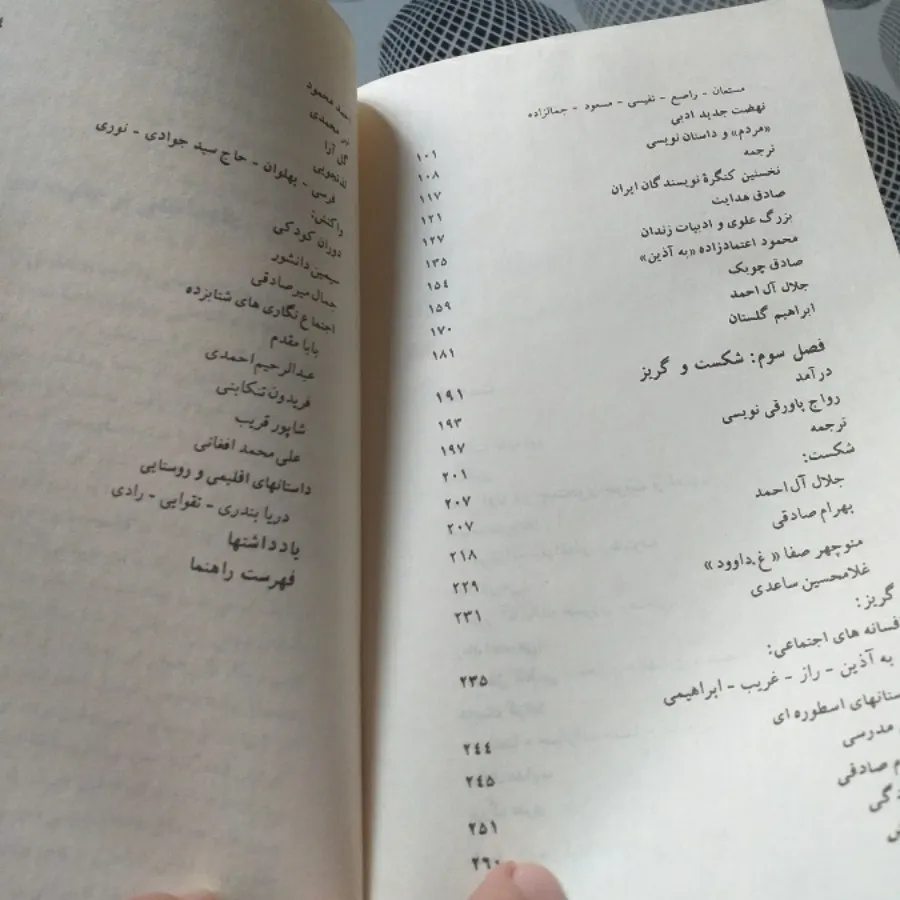 مستعان - راصع - نفیسی - مسعود - جمالزاده
نهضت جدید ادبی
«مردم» و داستان نویسی ۱۰۱
ترجمه ۱۰۸
نخستین کنگرهٔ نویسندگان ایران ۱۱۷
صادق هدایت ۱۲۱
بزرگ علوی و ادبیات زندان ۱۲۷
محمود اعتمادزاده «به آذین» ۱۳۵
صادق چوبک ۱۵۴
جلال آل احمد ۱۵۹
ابراهیم گلستان ۱۷۰
۱۸۱
فصل سوم: شکست و گریز
درآمد ۱۹۱
رواج پاورقی نویسی ۱۹۳
ترجمه ۱۹۷
شکست: ۲۰۱
جلال آل احمد ۲۰۷
بهرام صادقی ۲۰۷
منوچهر صفا «غ.داوود» ۲۱۸
غلامحسین ساعدی ۲۲۹
گریز: ۲۳۱
فسانه های اجتماعی:
به آذین - راز - غریب - ابراهیمی ۲۳۵
ستانهای اسطوره ای
مدرسی ۲۴۴
صادقی ۲۴۵
۲۵۱
۲۹۰
احمد محمود
محمدی
گل آرا
فرسی - پهلوان - حاج سید جوادی - نوری
واکنش:
دوران کودکی
سیمین دانشور
جمال میرصادقی
اجتماع نگاری های شتابزده
بابا مقدم
عبدالرحیم احمدی
فریدون تنکابنی
شاپور قریب
علی محمد افغانی
داستانهای اقلیمی و روستایی
دریا بندری - تقوایی - رادی
یادداشتها
فهرست راهنما